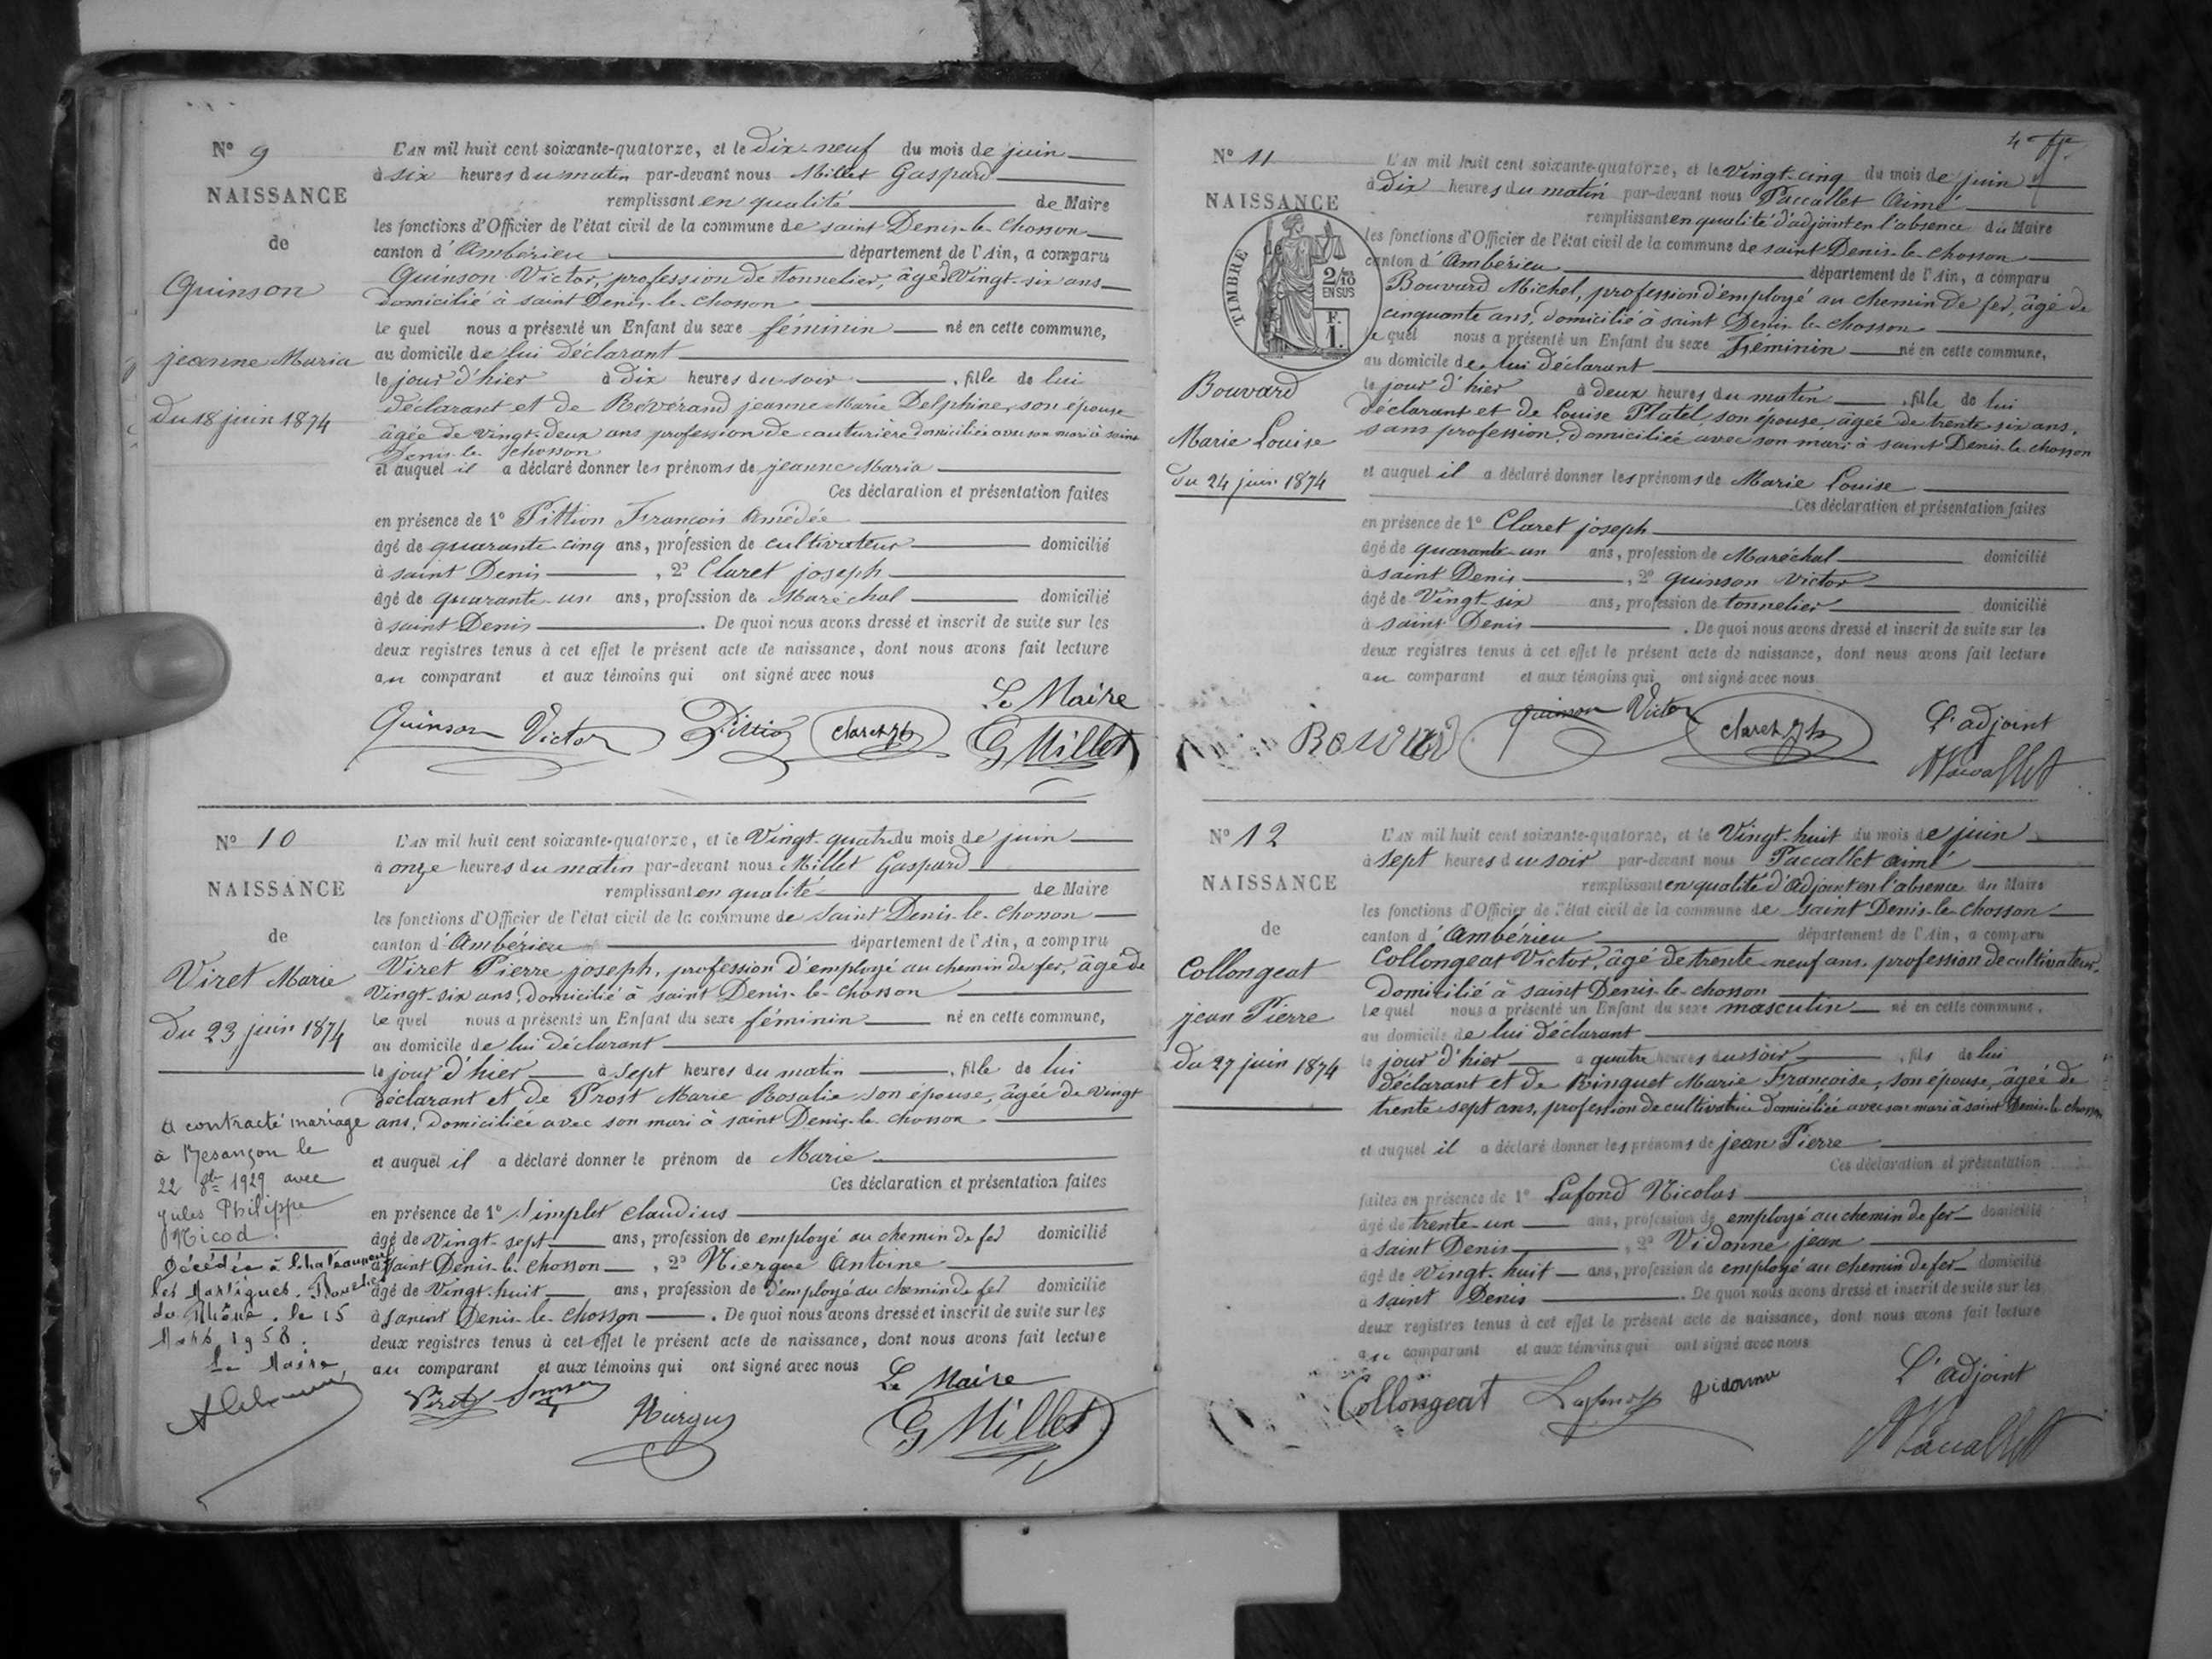 N° 9
NAISSANCE
de
Quinson
jeanne Maria
du 18 juin 1874
L'AN mil huit cent soixante-quatorze, et le dix-neuf du mois de juin
à six heures du matin par-devant nous Millet Gaspard
remplissant en qualité de Maire
les fonctions d'Officier de l'état civil de la commune de saint Denis-le-Chosson
canton d'Ambérieu département de l'Ain, a comparu
Quinson Victor, profession de tonnelier, âgé de Vingt-six ans
domicilié à saint Denis-le-chosson
le quel nous a présenté un Enfant du sexe féminin né en cette commune,
au domicile de lui déclarant
le jour d'hier à dix heures du soir, fille de lui
déclarant et de Révérand jeanne Marie Delphine, son épouse
âgée de vingt-deux ans profession de couturière domiciliée avec son mari à saint
Denis-le-chosson
et auquel il a déclaré donner les prénoms de jeanne Maria
Ces déclaration et présentation faites
en présence de 1° Pittion François Amédée
âgé de quarante-cinq ans, profession de cultivateur domicilié
à saint Denis, 2° Claret joseph
âgé de quarante-un ans, profession de Maréchal domicilié
à saint Denis. De quoi nous avons dressé et inscrit de suite sur les
deux registres tenus à cet effet le présent acte de naissance, dont nous avons fait lecture
au comparant et aux témoins qui ont signé avec nous
Le Maire
Quinson Victor Pittion Claret Jh G Millet
N° 10
NAISSANCE
de
Viret Marie
du 23 juin 1874
a contracté mariage
à Besançon le
22 8bre 1929 avec
Jules Philippe
Nicod.
Décédée à Chateauneuf
les Martigues. Bouches
du Rhône. le 15
Mars 1958.
Le Maire
L'AN mil huit cent soixante-quatorze, et le Vingt-quatre du mois de juin
à onze heures du matin par-devant nous Millet Gaspard
remplissant en qualité de Maire
les fonctions d'Officier de l'état civil de la commune de saint Denis-le-Chosson
canton d'Ambérieu département de l'Ain, a comparu
Viret Pierre joseph, profession d'employé au chemin de fer, âgé de
Vingt-six ans, domicilié à saint Denis-le-chosson
le quel nous a présenté un Enfant du sexe féminin né en cette commune,
au domicile de lui déclarant
le jour d'hier à sept heures du matin, fille de lui
déclarant et de Prost Marie Rosalie son épouse, âgée de vingt
ans, domiciliée avec son mari à saint Denis-le-chosson
et auquel il a déclaré donner le prénom de Marie
Ces déclaration et présentation faites
en présence de 1° Simplet Claudius
âgé de Vingt-sept ans, profession de employé au chemin de fer domicilié
à saint Denis-le-chosson, 2° Niergue Antoine
âgé de Vingt-huit ans, profession de d'employé au chemin de fer domicilié
à saint Denis-le-Chosson. De quoi nous avons dressé et inscrit de suite sur les
deux registres tenus à cet effet le présent acte de naissance, dont nous avons fait lecture
au comparant et aux témoins qui ont signé avec nous
Le Maire
Viret G Millet
4
N° 11
NAISSANCE
de
TIMBRE
2/10
EN SUS
F.
1.
Bouvard
Marie Louise
du 24 juin 1874
L'AN mil huit cent soixante-quatorze, et le Vingt-cinq du mois de juin
à Dix heures du matin par-devant nous Paccallet Aimé
remplissant en qualité d'adjoint en l'absence du Maire
les fonctions d'Officier de l'état civil de la commune de saint Denis-le-chosson
canton d'Ambérieu département de l'Ain, a comparu
Bouvard Michel, profession d'employé au chemin de fer, âgé de
cinquante ans, domicilié à saint Denis-le-chosson
le quel nous a présenté un Enfant du sexe Feminin né en cette commune,
au domicile de lui déclarant
le jour d'hier à deux heures du matin, fille de lui
déclarant et de Louise Platel, son épouse, âgée de trente-six ans,
sans profession, domiciliée avec son mari à saint Denis-le-chosson
et auquel il a déclaré donner les prénoms de Marie Louise
Ces déclaration et présentation faites
en présence de 1° Claret joseph
âgé de quarante-un ans, profession de Maréchal domicilié
à saint Denis, 2° quinson victor
âgé de Vingt-six ans, profession de tonnelier domicilié
à saint Denis. De quoi nous avons dressé et inscrit de suite sur les
deux registres tenus à cet effet le présent acte de naissance, dont nous avons fait lecture
au comparant et aux témoins qui ont signé avec nous
Bouvard quinson Victor Claret Jh L'adjoint
N° 12
NAISSANCE
de
Collongeat
jean Pierre
du 27 juin 1874
L'AN mil huit cent soixante-quatorze, et le Vingt-huit du mois de juin
à sept heures du soir par-devant nous Paccallet aimé
remplissant en qualité d'adjoint en l'absence du Maire
les fonctions d'Officier de l'état civil de la commune de saint Denis-le-chosson
canton d'Ambérieu département de l'Ain, a comparu
Collongeat Victor, âgé de trente-neuf ans, profession de cultivateur,
domicilié à saint Denis-le-chosson
le quel nous a présenté un Enfant du sexe masculin né en cette commune,
au domicile de lui déclarant
le jour d'hier à quatre heures du soir, fils de lui
déclarant et de Ringuet Marie Francoise, son épouse, âgée de
trente-sept ans, profession de cultivatrice domiciliée avec son mari à saint Denis-le-chosson
et auquel il a déclaré donner les prénoms de jean Pierre
Ces déclaration et présentation
faites en présence de 1° Lafond Nicolas
âgé de trente-un ans, profession de employé au chemin de fer domicilié
à saint Denis, 2° Vidonne jean
âgé de Vingt-huit ans, profession de employé au chemin de fer domicilié
à saint Denis. De quoi nous avons dressé et inscrit de suite sur les
deux registres tenus à cet effet le présent acte de naissance, dont nous avons fait lecture
au comparant et aux témoins qui ont signé avec nous
Collongeat Lafond Vidonne L'adjoint